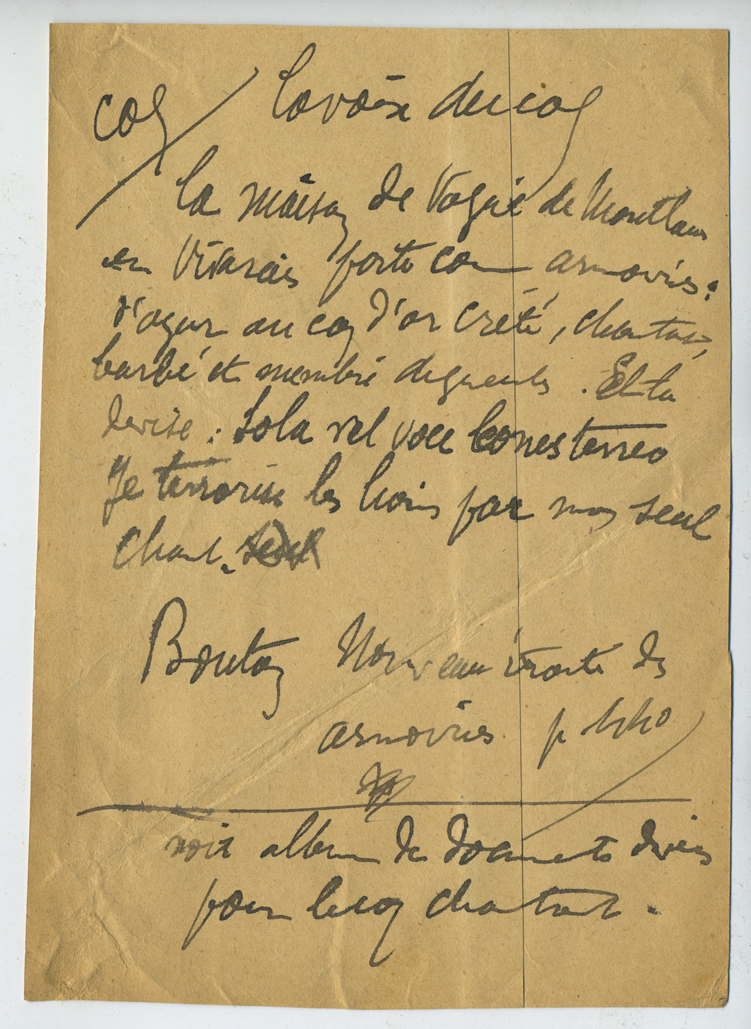 coq / la voix du coq
la maison de Vogüé de Montlaur
en Vivarais porte comme armoiries :
d'azur au coq d'or crêté, chantant,
barbé et membré de gueules. Et la
devise : Sola vel voce leones terreo
Je terrorise les lions par mon seul
chant.
Bouton Nouveau traité des
armoiries p
voir album de documents divers
pour le coq chantant.